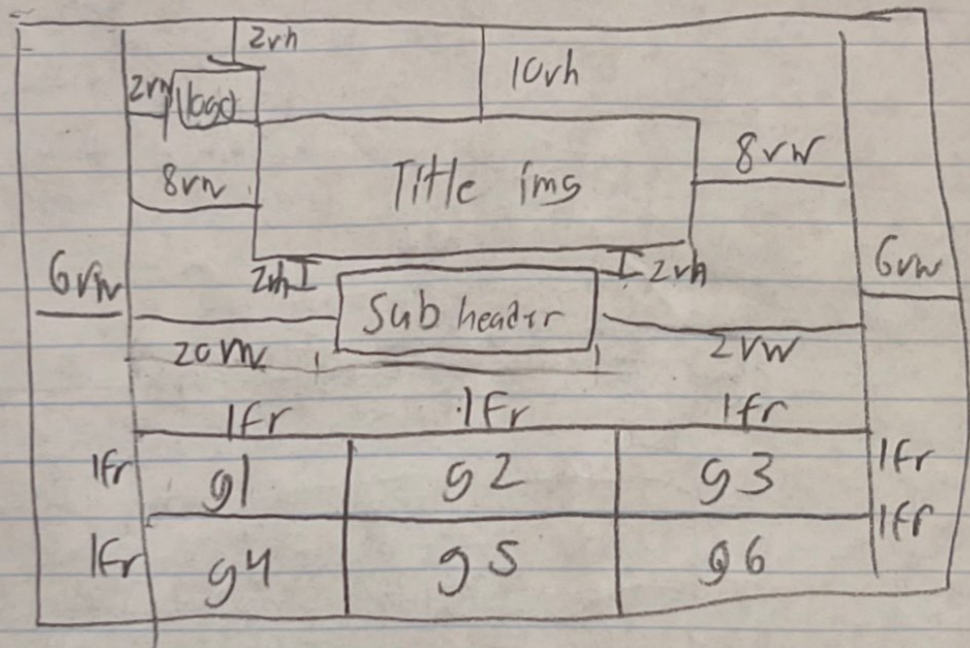 2vh
10vh
2vw logo
8vw
Title img
8vw
6vw
2vh
2vh
6vw
Sub header
20vw
2vw
1fr 1fr 1fr
1fr g1 g2 g3 1fr
1fr g4 g5 g6 1fr